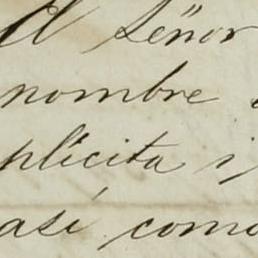 El Señor
nombre
plícita i
así como